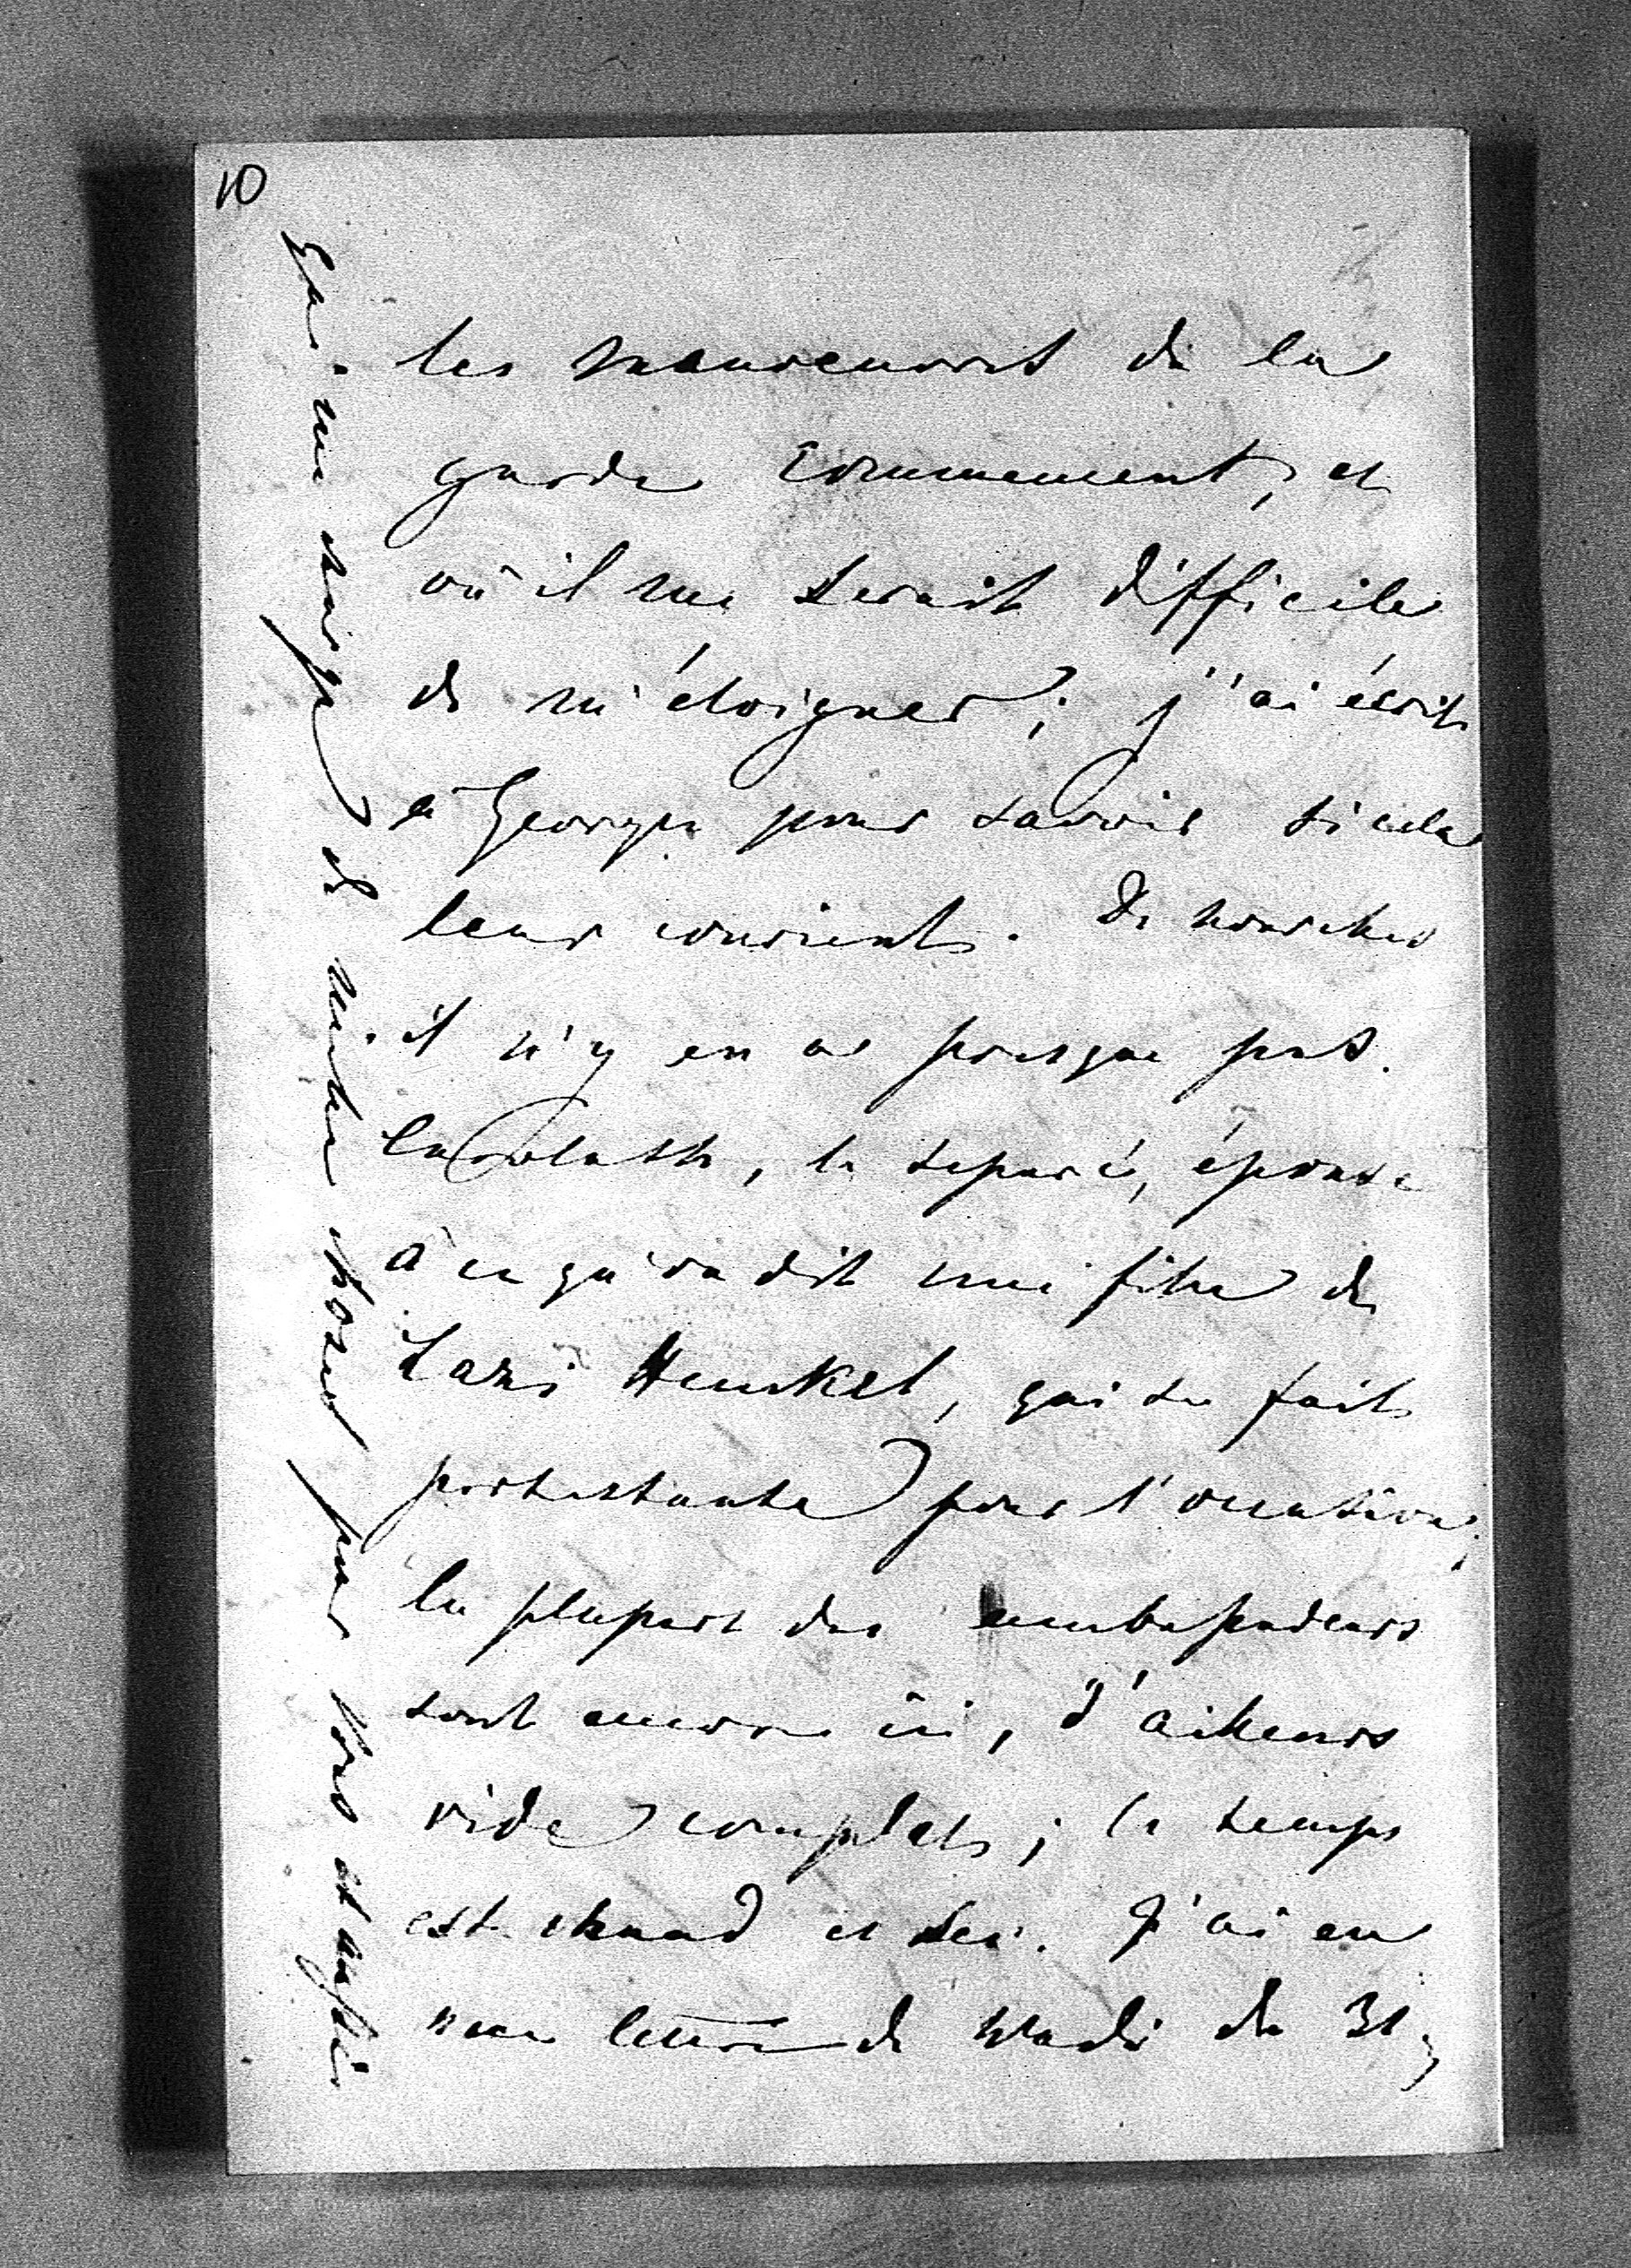 10
les manoeuvres de la
garde commencent, et
où il me serait difficile
de m'éloigner; j'ai écrit
à Georges pour savoir si cela
leur convient. De nouvelles
il n'y en a presque pas.
le séparé, épouse
à ce qu'on dit une fille de
Lazi Henkel, qui se fait
protestante pour l'occasion;
la plupart des ambassadeurs
sont encore ici, d'ailleurs
vide complet; le temps
est chaud et sec. J'ai eu
une lettre de Wadi du 31;
et mille choses pour vous et